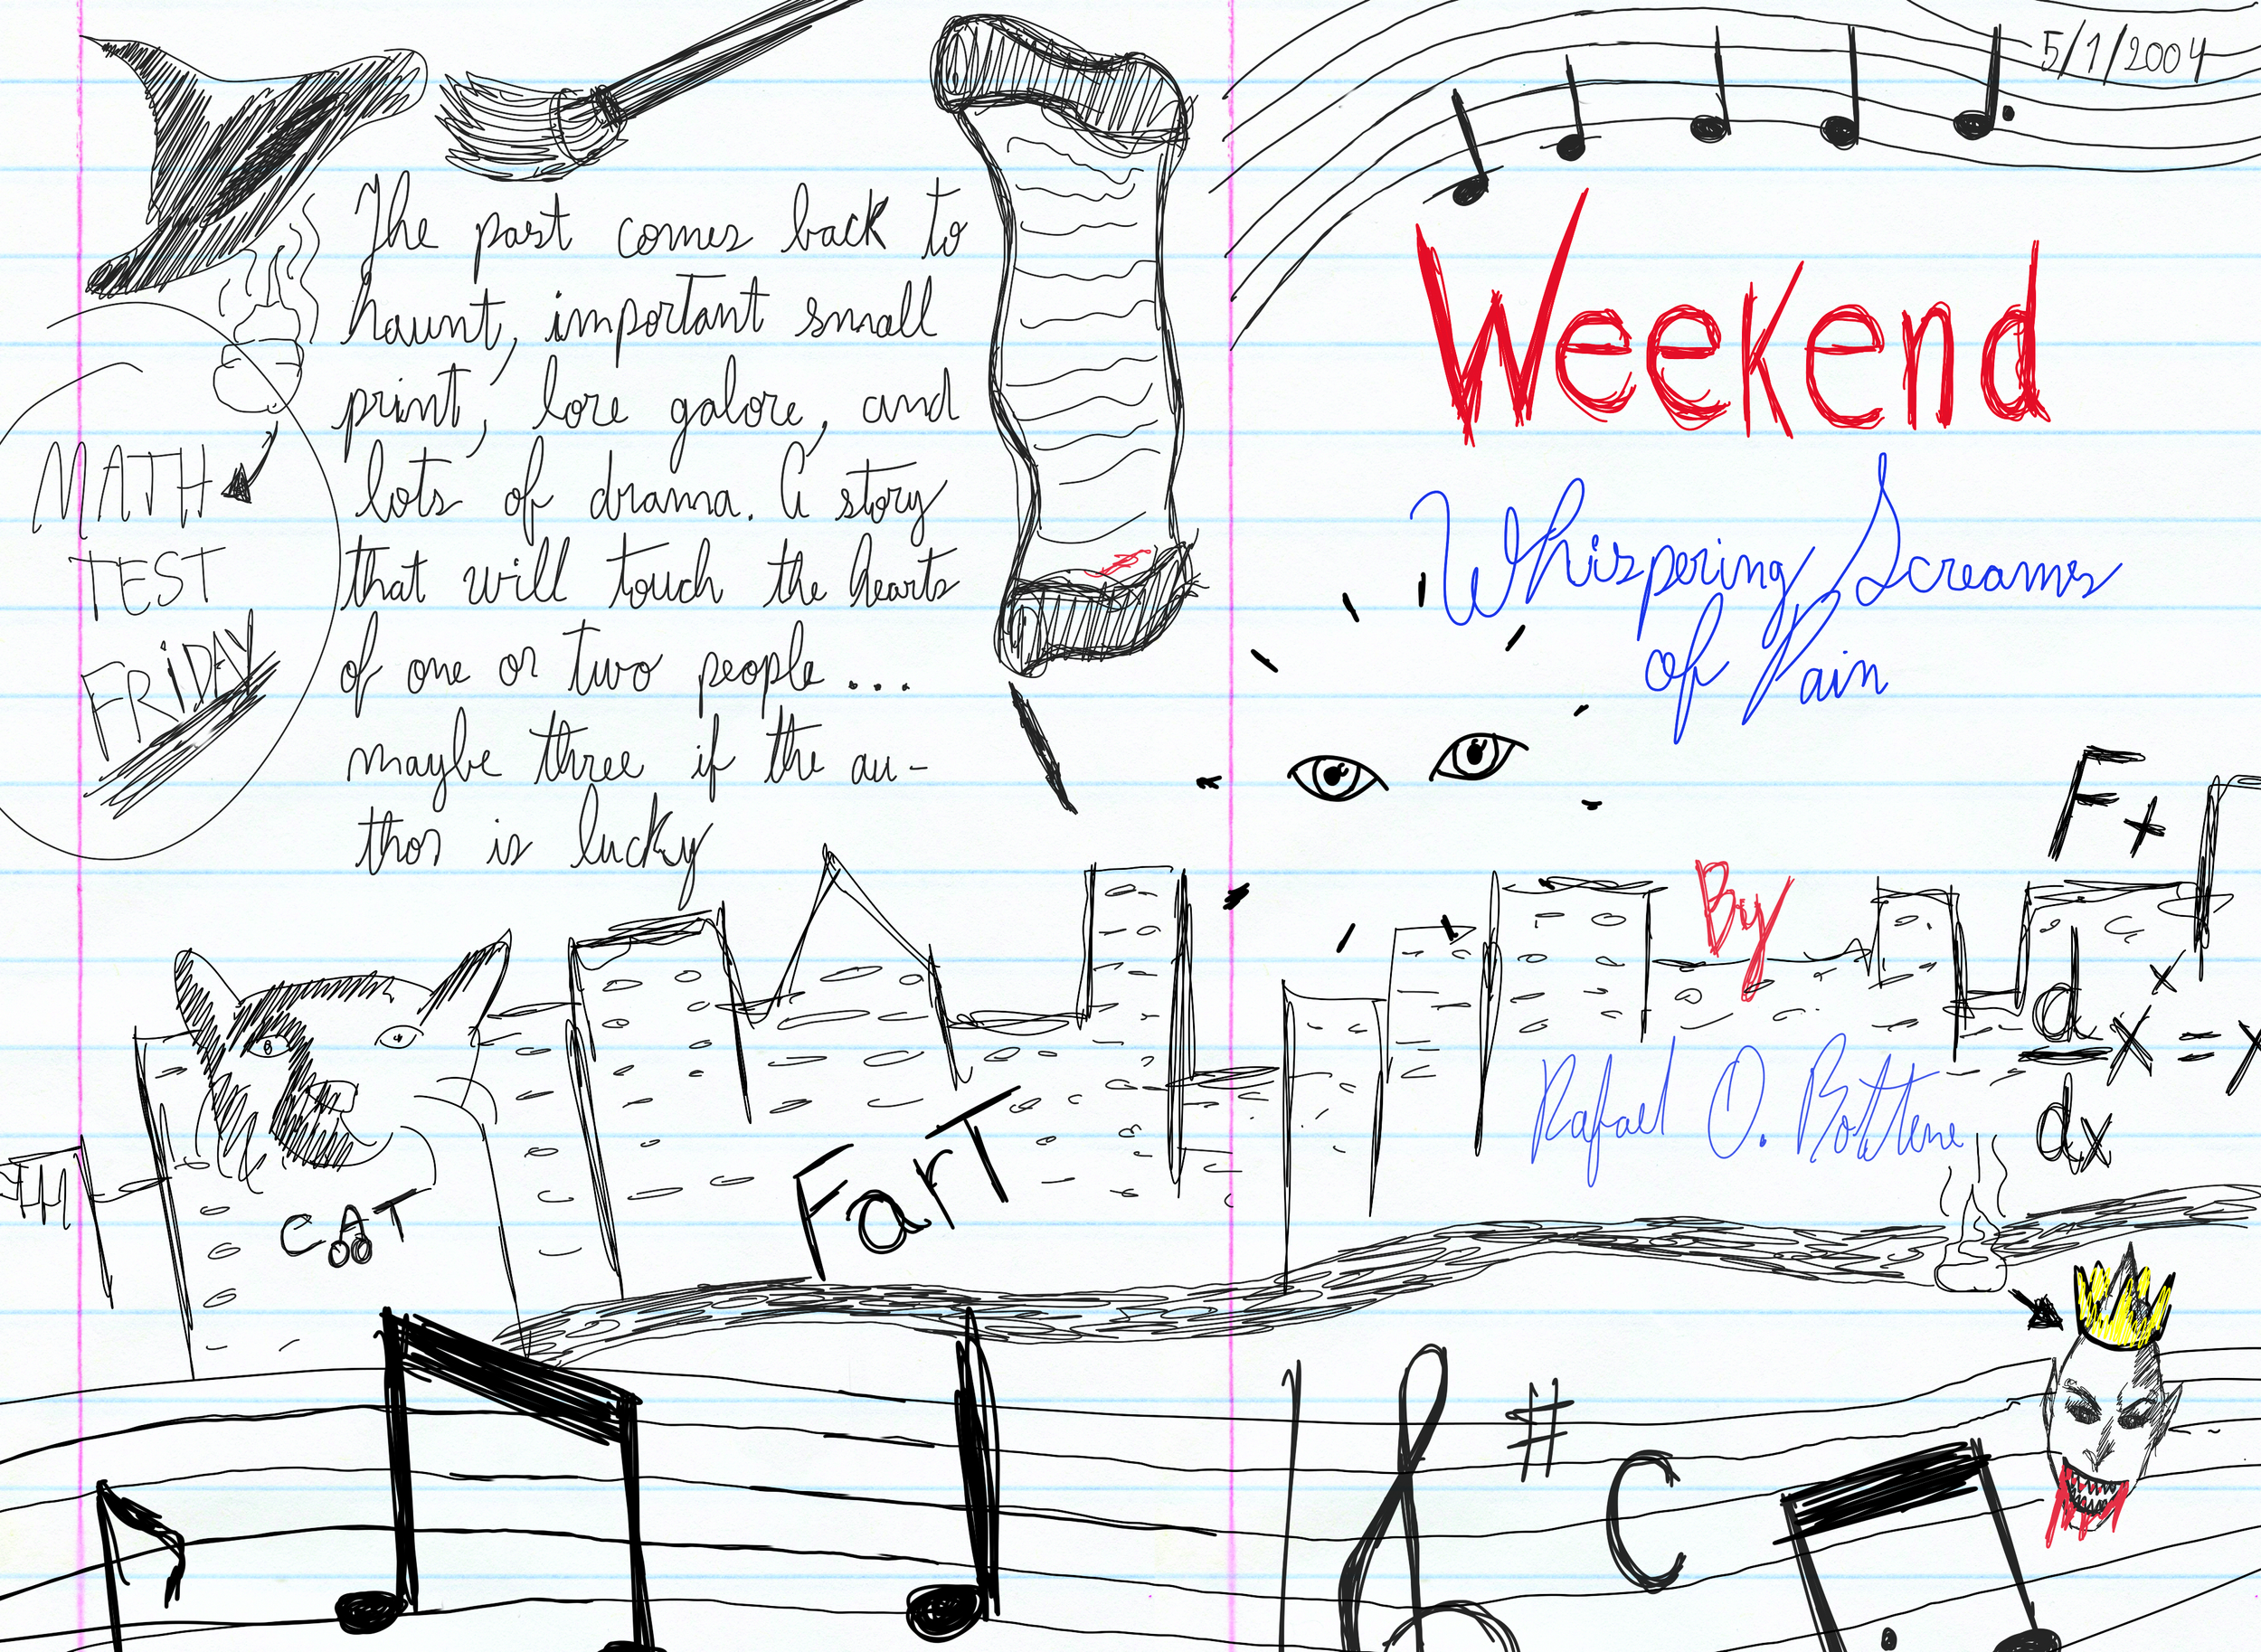 The past comes back to
haunt, important small
print, lore galore, and
lots of drama. A story
that will touch the hearts
of one or two people...
maybe three if the au-
thor is lucky
MATH
TEST
FRIDAY
CAT
Fart
5/1/2004
Weekend
Whispering Screams
of Pain
By
Rafael O. Bottene
F+
x
d x = x
dx
# C